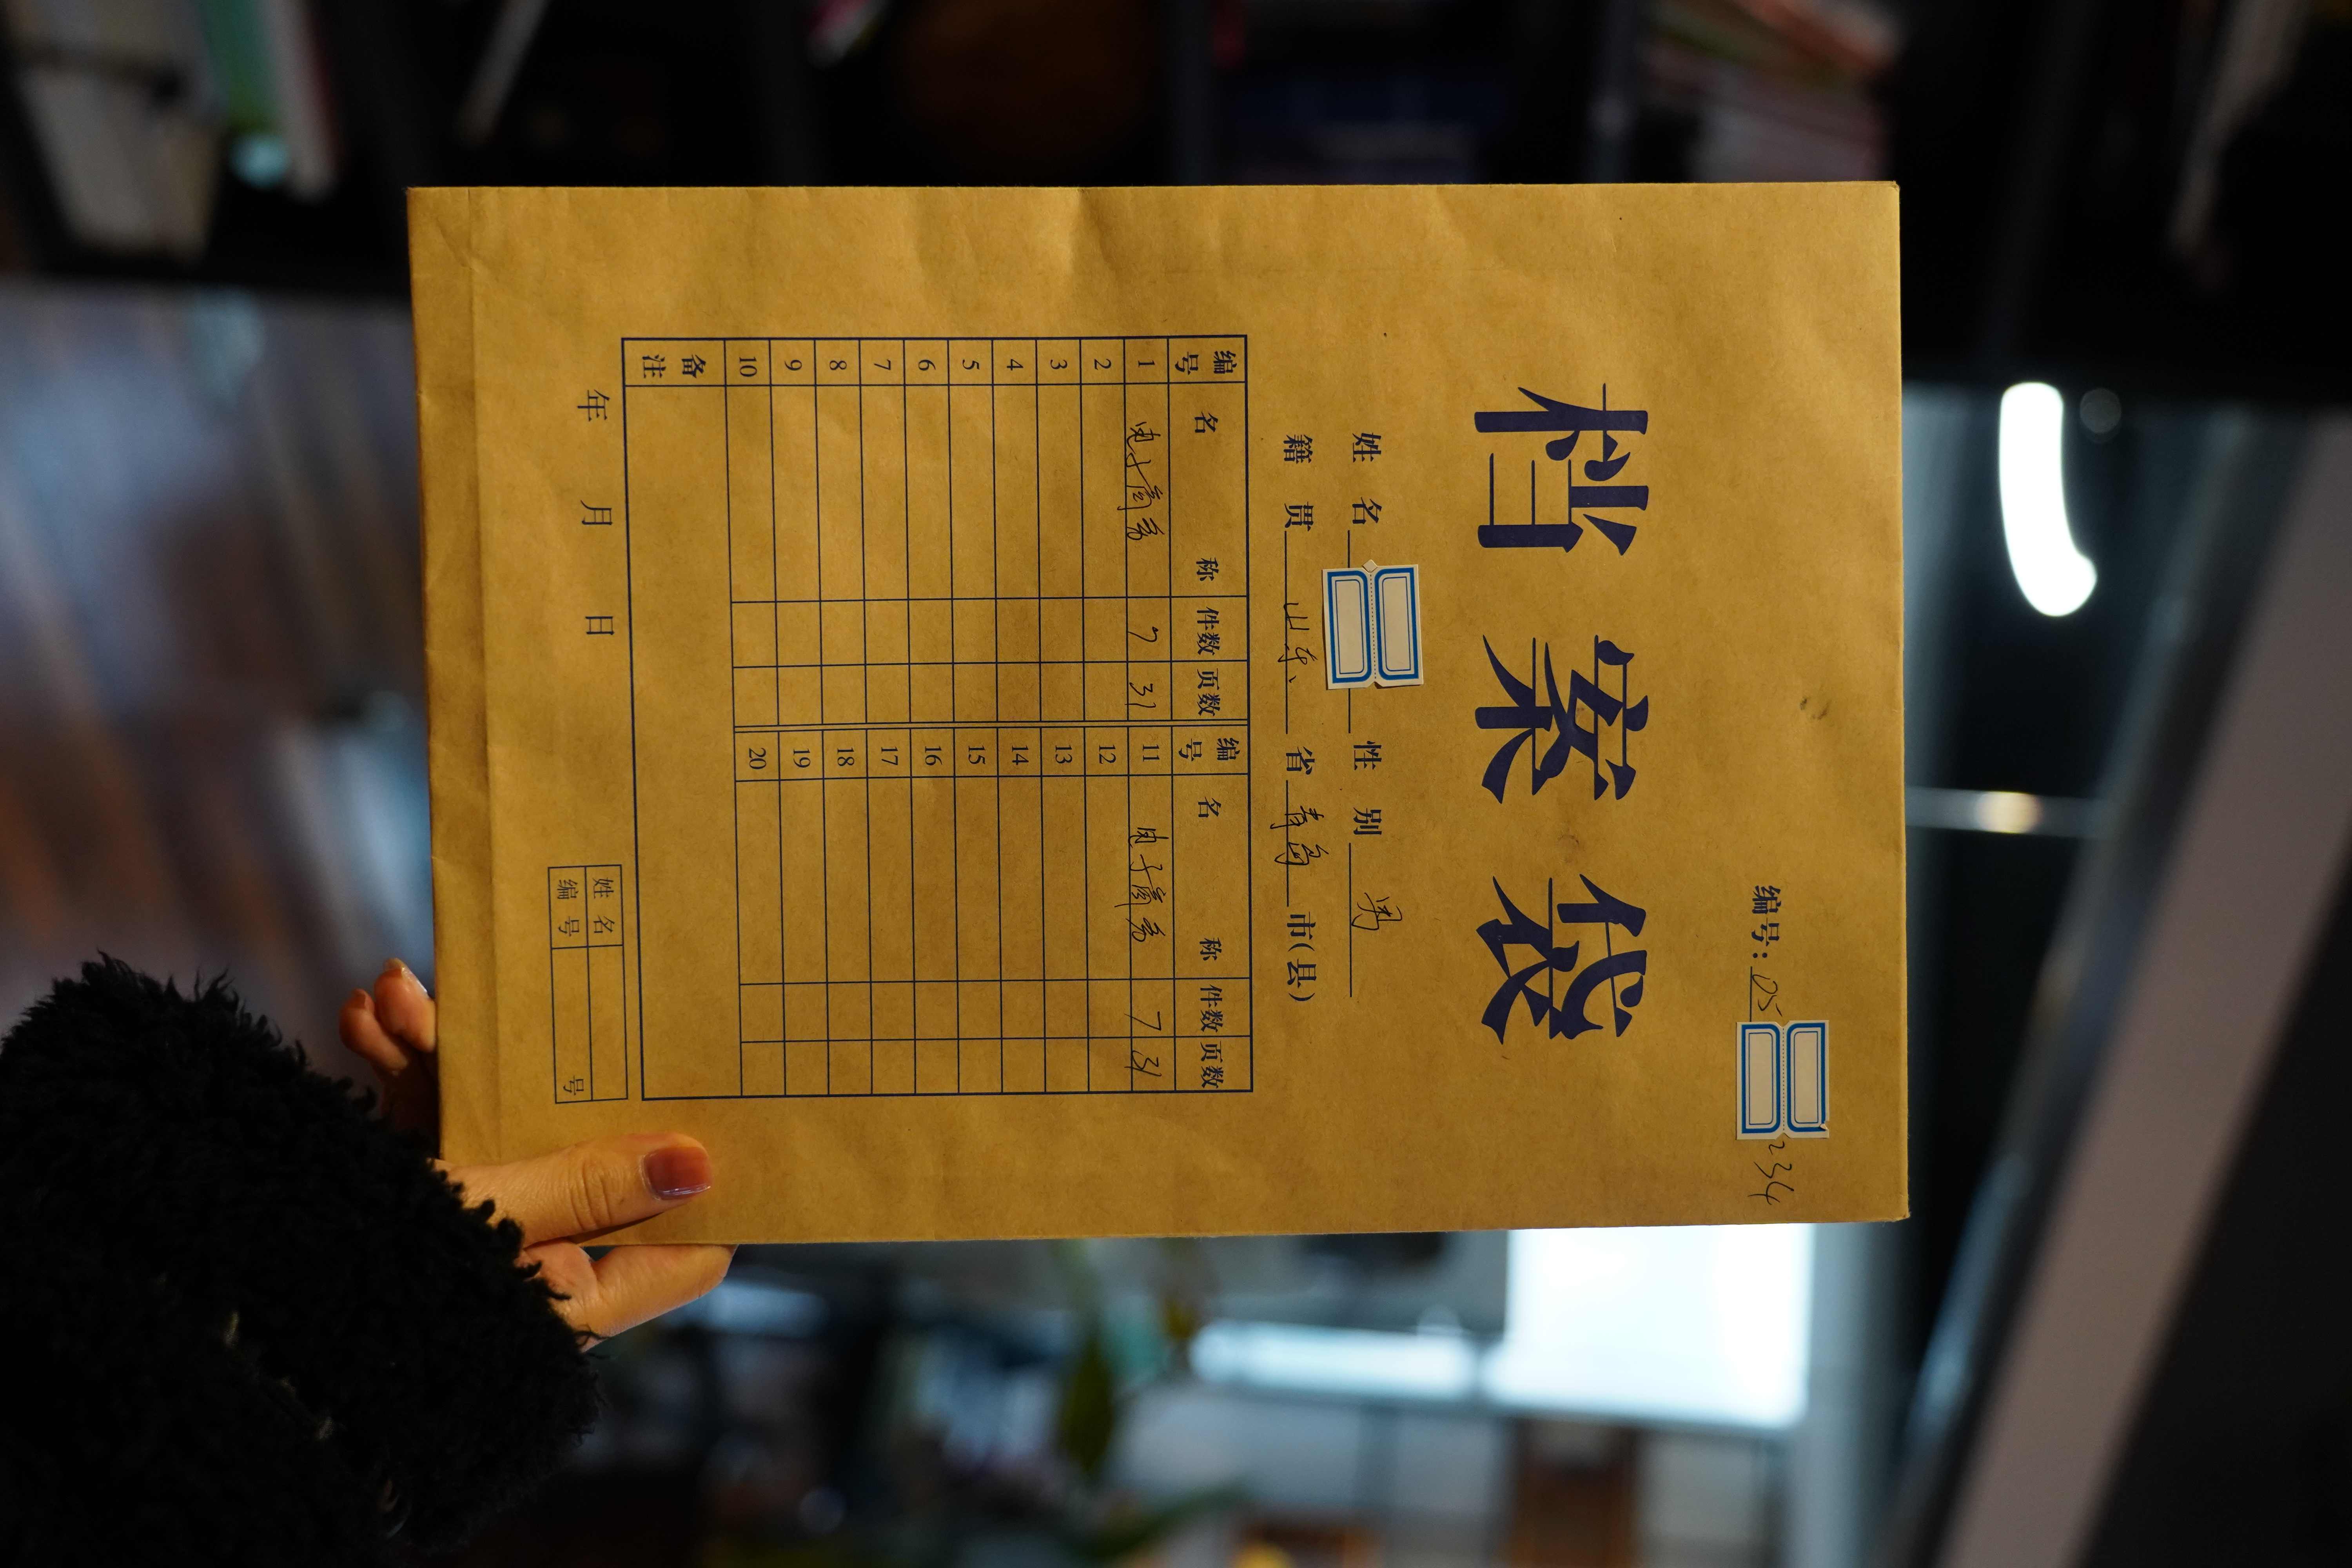 编号：05 234
档案袋
姓名 性别 男
籍贯 山东 省 青岛 市(县)
编号 名称 件数 页数 编号 名称 件数 页数
1 电子商务 7 31 11 电子商务 7 31
2 12
3 13
4 14
5 15
6 16
7 17
8 18
9 19
10 20
备注
年 月 日
姓名
编号 号